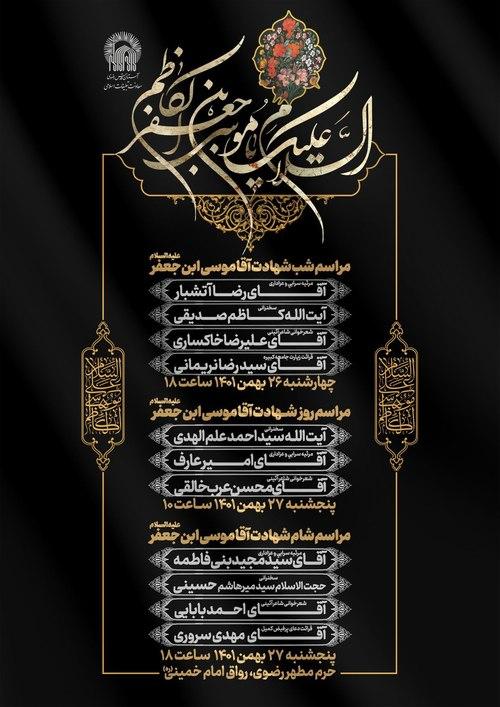 آستان قدس رضوی
معاونت تبلیغات اسلامی
السلام علیک یا موسی بن جعفر الکاظم
علیه‌السلام
مراسم شب شهادت آقا موسی ابن جعفر
مرثیه سرایی و عزاداری
آقای رضا آتشبار
سخنرانی
آیت الله کاظم صدیقی
شعرخوانی شاعر آئینی
آقای علیرضا خاکساری
قرائت زیارت جامعه کبیره
آقای سید رضا نریمانی
چهارشنبه ۲۶ بهمن ۱۴۰۱ ساعت ۱۸
علیه‌السلام
مراسم روز شهادت آقا موسی ابن جعفر
سخنرانی
آیت الله سید احمد علم الهدی
مرثیه سرایی و عزاداری
آقای امیر عارف
شعرخوانی شاعر آئینی
آقای محسن عرب خالقی
پنجشنبه ۲۷ بهمن ۱۴۰۱ ساعت ۱۰
علیه‌السلام
مراسم شام شهادت آقا موسی ابن جعفر
مرثیه سرایی و عزاداری
آقای سید مجید بنی فاطمه
سخنرانی
حجت الاسلام سید میرهاشم حسینی
شعرخوانی شاعر آئینی
آقای احمد بابایی
قرائت دعای پرفیض کمیل
آقای مهدی سروری
پنجشنبه ۲۷ بهمن ۱۴۰۱ ساعت ۱۸
حرم مطهر رضوی، رواق امام خمینی(ره)